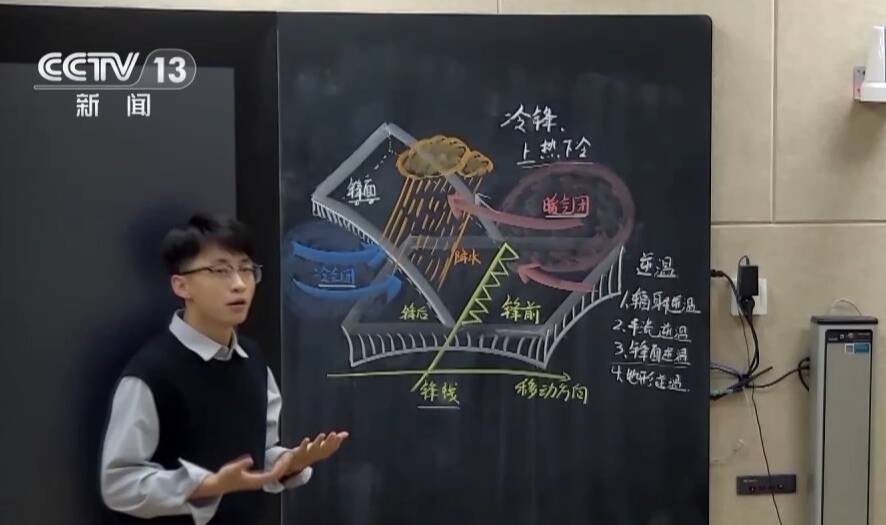 CCTV 13
新闻
冷锋、
上热下冷
锋面
暖气团
冷气团
降水
逆温
锋后
锋前
1.辐射逆温
2.平流逆温
3.锋面逆温
4.地形逆温
锋线
移动方向